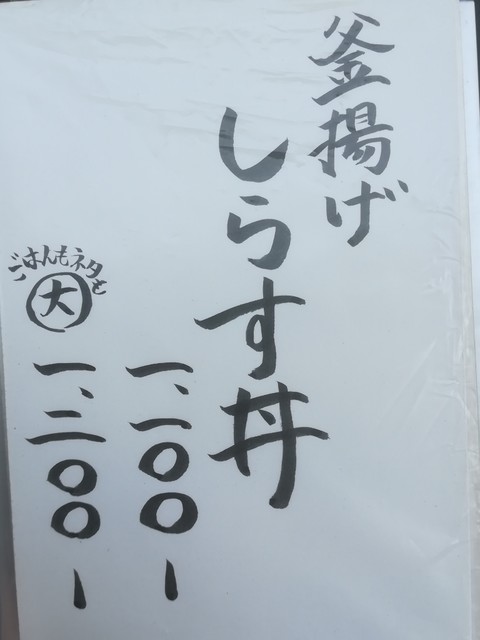 釜揚げ
しらす丼
一、一〇〇-
ごはんもネタも
大
一、二〇〇-